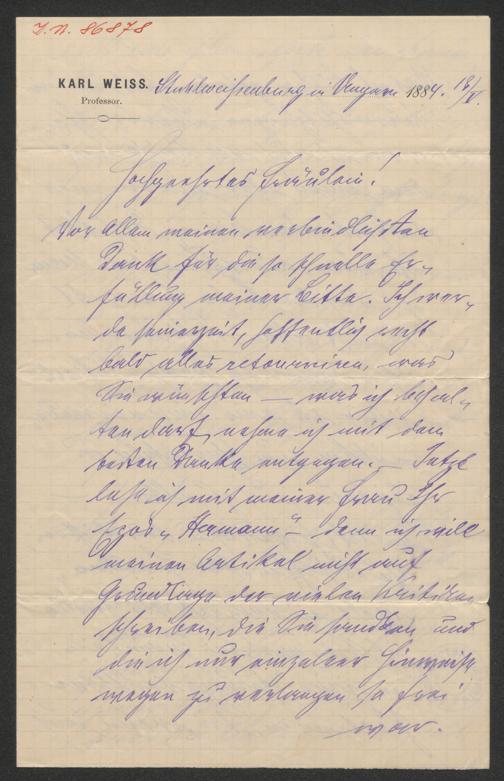 J. N. 86878
KARL WEISS.
Professor.
Stuhlweißenburg in Ungarn 1884. 18/V.
Hochgeehrtes Fräulein!
Vor Allem meinen verbindlichsten
Dank für die so schnelle Er-
füllung meiner Bitte. Ich wer-
de seinerzeit, hoffentlich recht
bald alles retourniren, was
Sie wünschten — was ich behal-
ten darf, nehme ich mit dem
besten Danke entgegen. — Jetzt
lese ich mit meiner Frau Ihr
Epos „Hermann" — denn ich will
meinen Artikel nicht auf
Grundlage der vielen Kritiken
schreiben, die Sie sandten und
die ich nur einzelner Hinweise
wegen zu verlangen so frei
war.